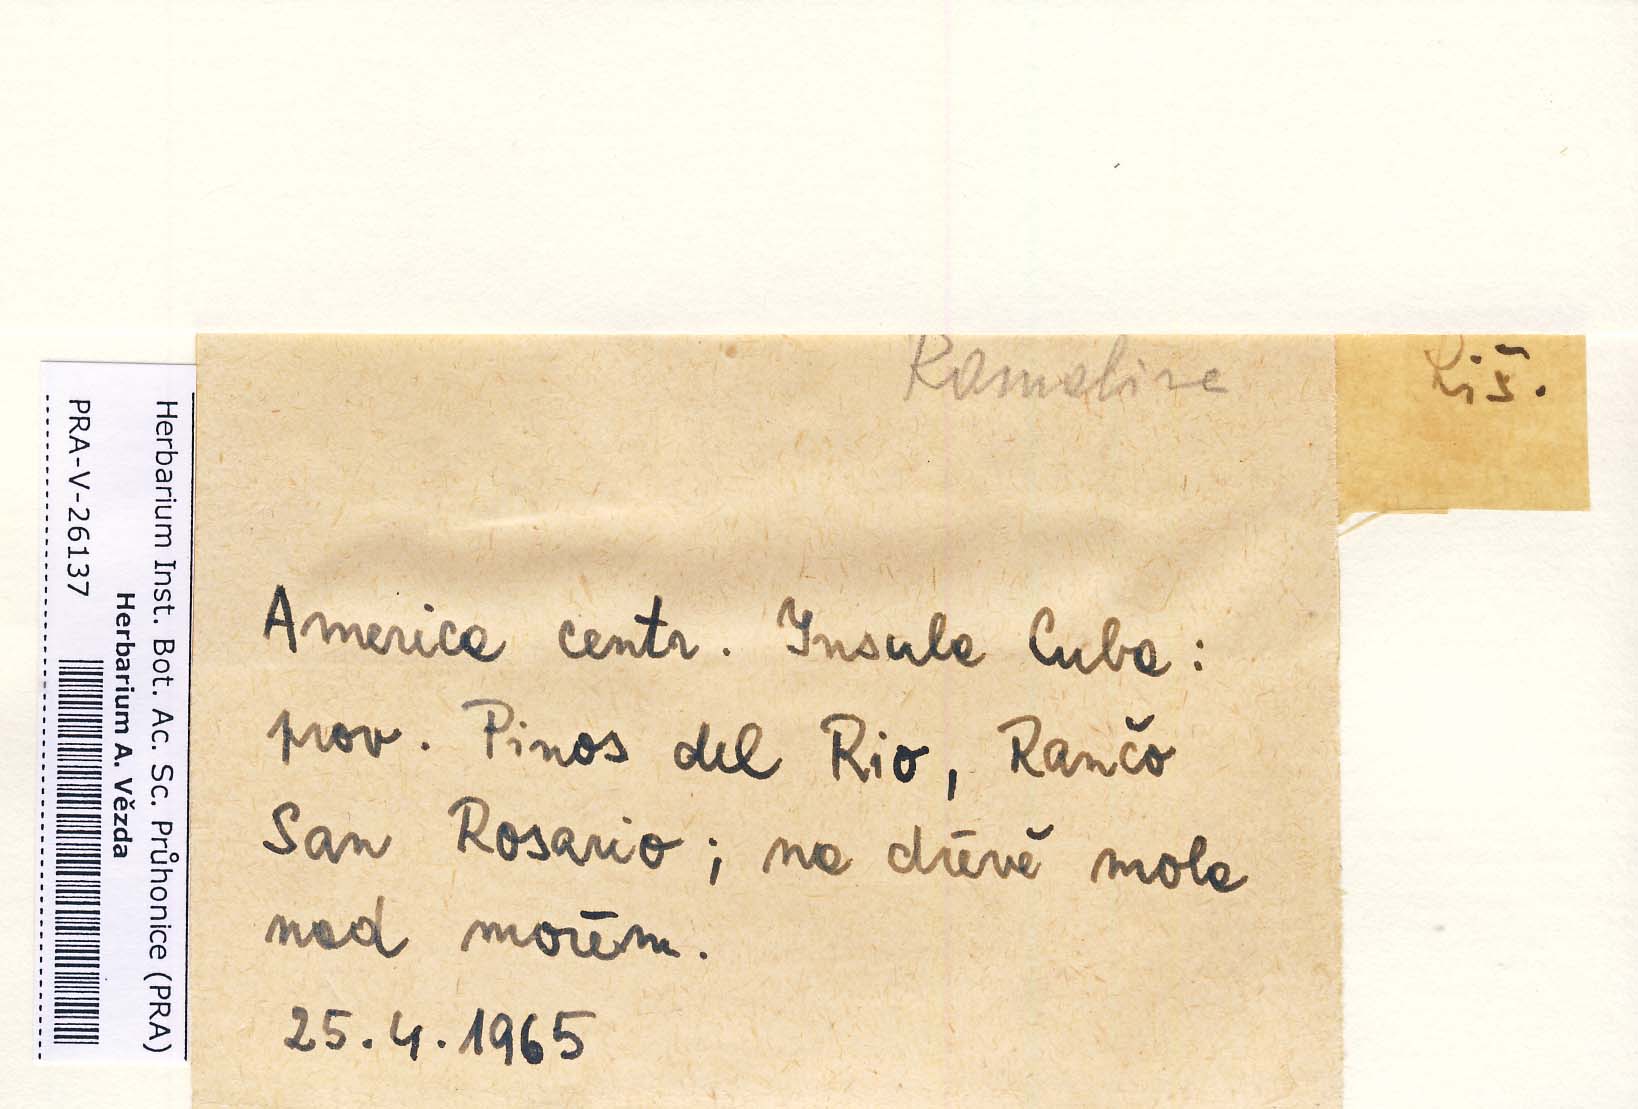 Ramalina
Liš.
America centr. Insula Cuba:
prov. Pinos del Rio, Rančo
San Rosario; na dřevě mola
nad mořem.
25.4.1965
Herbarium Inst. Bot. Ac. Sc. Průhonice (PRA)
Herbarium A. Vězda
PRA-V-26137